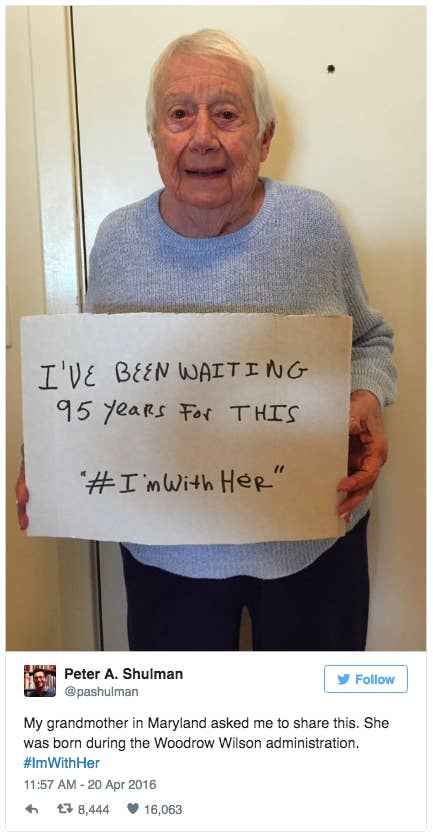 I'VE BEEN WAITING
95 Years For THIS
"#I'mWith Her"
Peter A. Shulman
@pashulman
Follow
My grandmother in Maryland asked me to share this. She
was born during the Woodrow Wilson administration.
#ImWithHer
11:57 AM - 20 Apr 2016
8,444 16,063